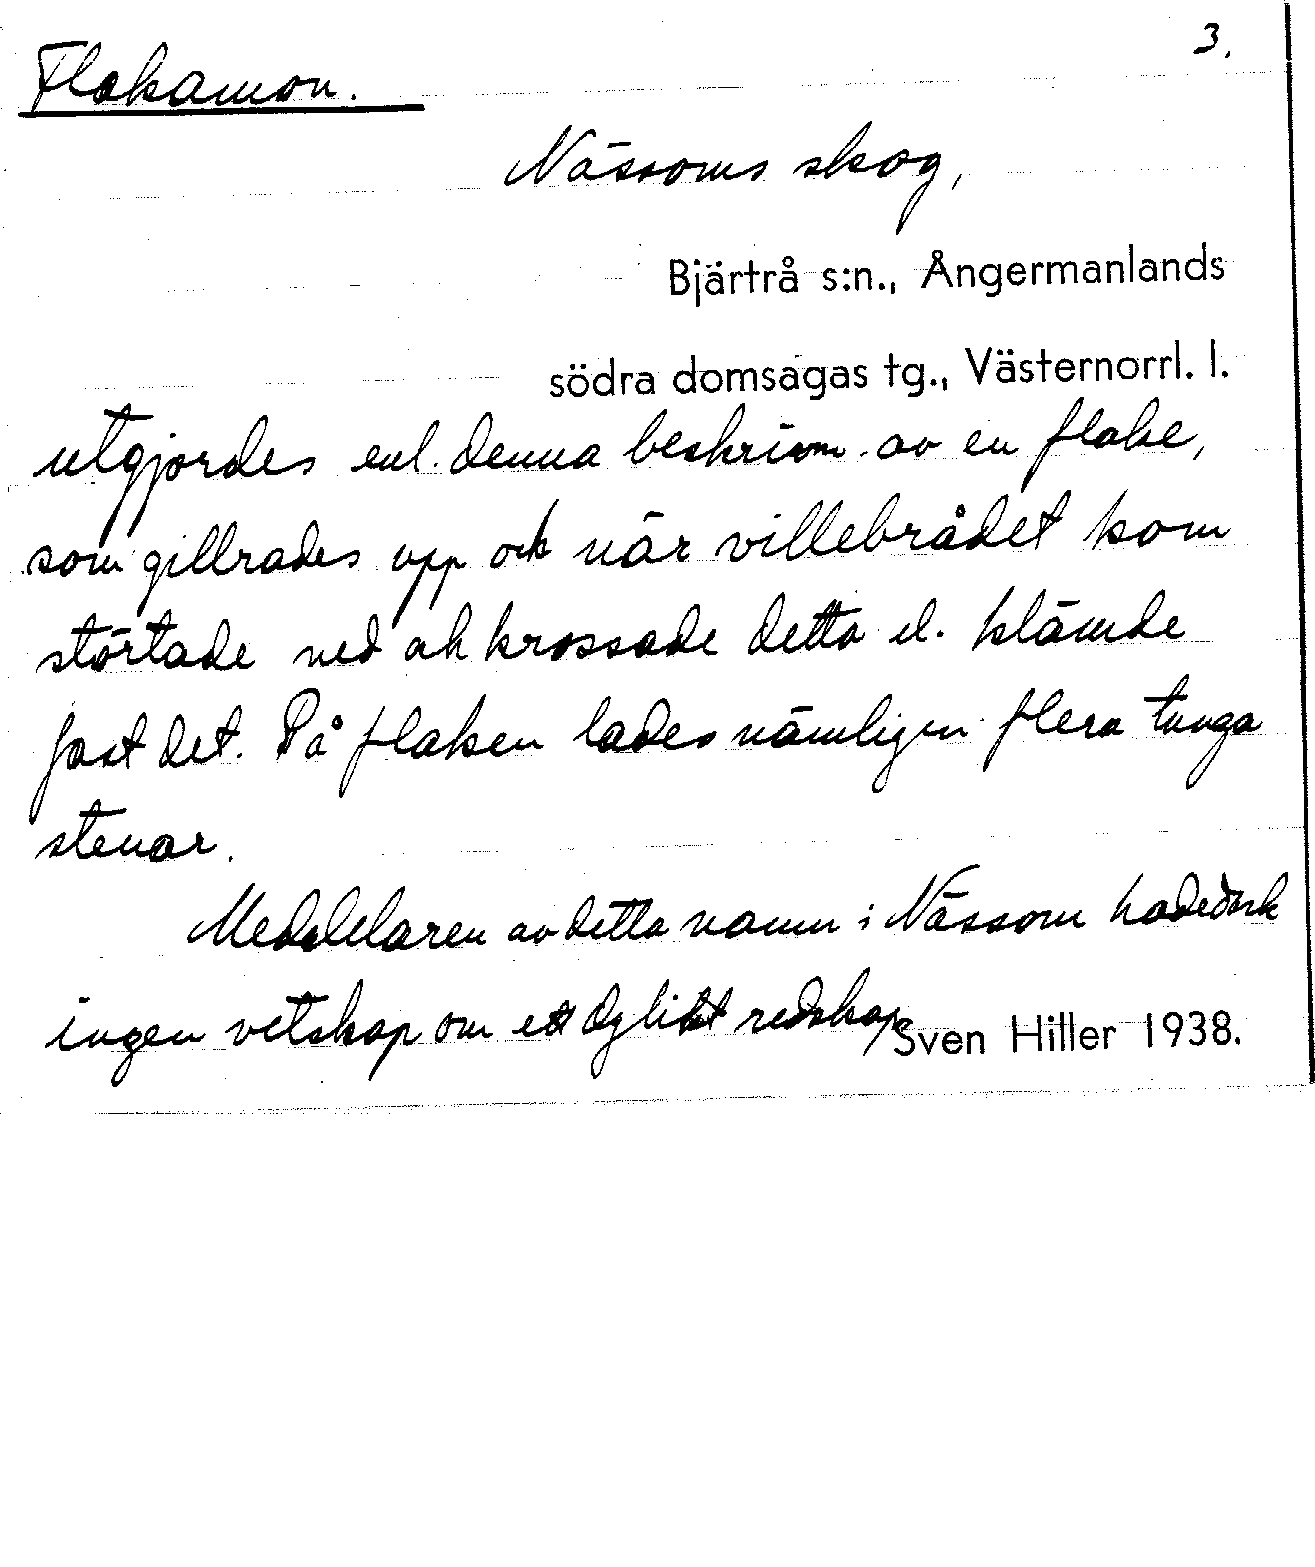 3.
Flakamon.
Nässoms skog,
Bjärtrå s:n., Ångermanlands
södra domsagas tg., Västernorrl. l.
utgjordes enl. denna beskrivn. av en flake,
som gillrades upp och när villebrådet kom
störtade ned och krossade detta el. klämde
fast det. På flaken lades nämligen flera tunga
stenar.
Meddelaren av detta namn i Nässom hade dock
ingen vetskap om ett dylikt redskap
Sven Hiller 1938.